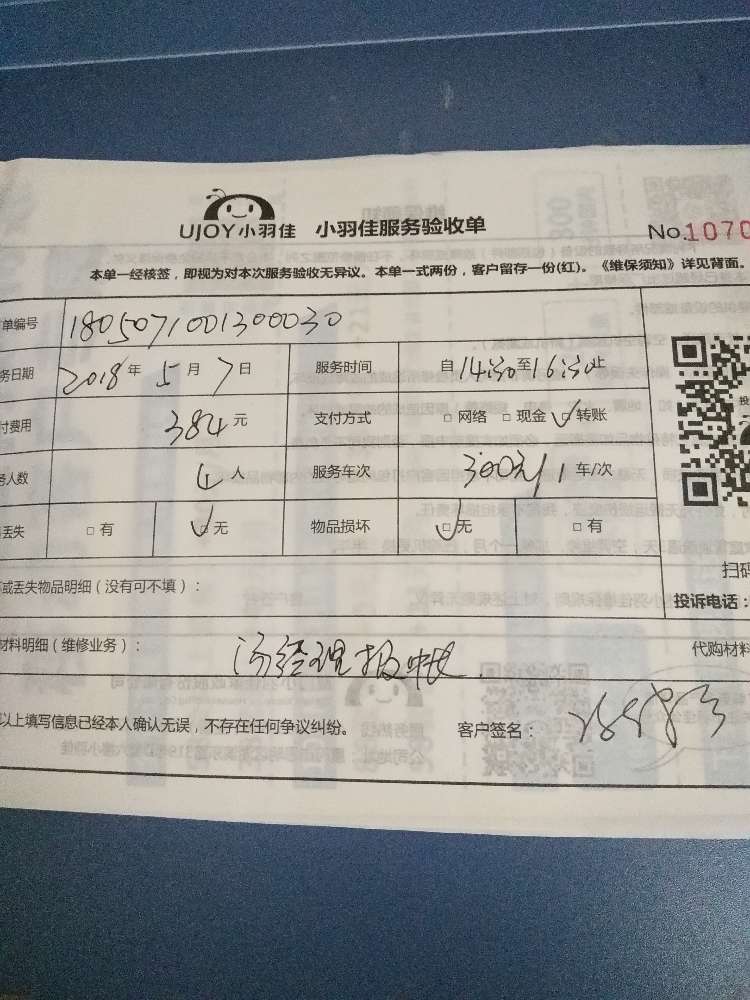 UJOY小羽佳 小羽佳服务验收单 No.1070
本单一经核签，即视为对本次服务验收无异议。本单一式两份，客户留存一份(红)。《维保须知》详见背面。
单编号 1805071001300030
务日期 2018年5月7日 服务时间 自14:30至16:30止
付费用 384元 支付方式 □网络 □现金 ☑转账
务人数 4人 服务车次 300元/1车/次
丢失 □有 ☑无 物品损坏 ☑无 □有
或丢失物品明细（没有可不填）： 扫码
投诉电话：
材料明细（维修业务）： 汤经理报账. 代购材料
以上填写信息已经本人确认无误，不存在任何争议纠纷。 客户签名：